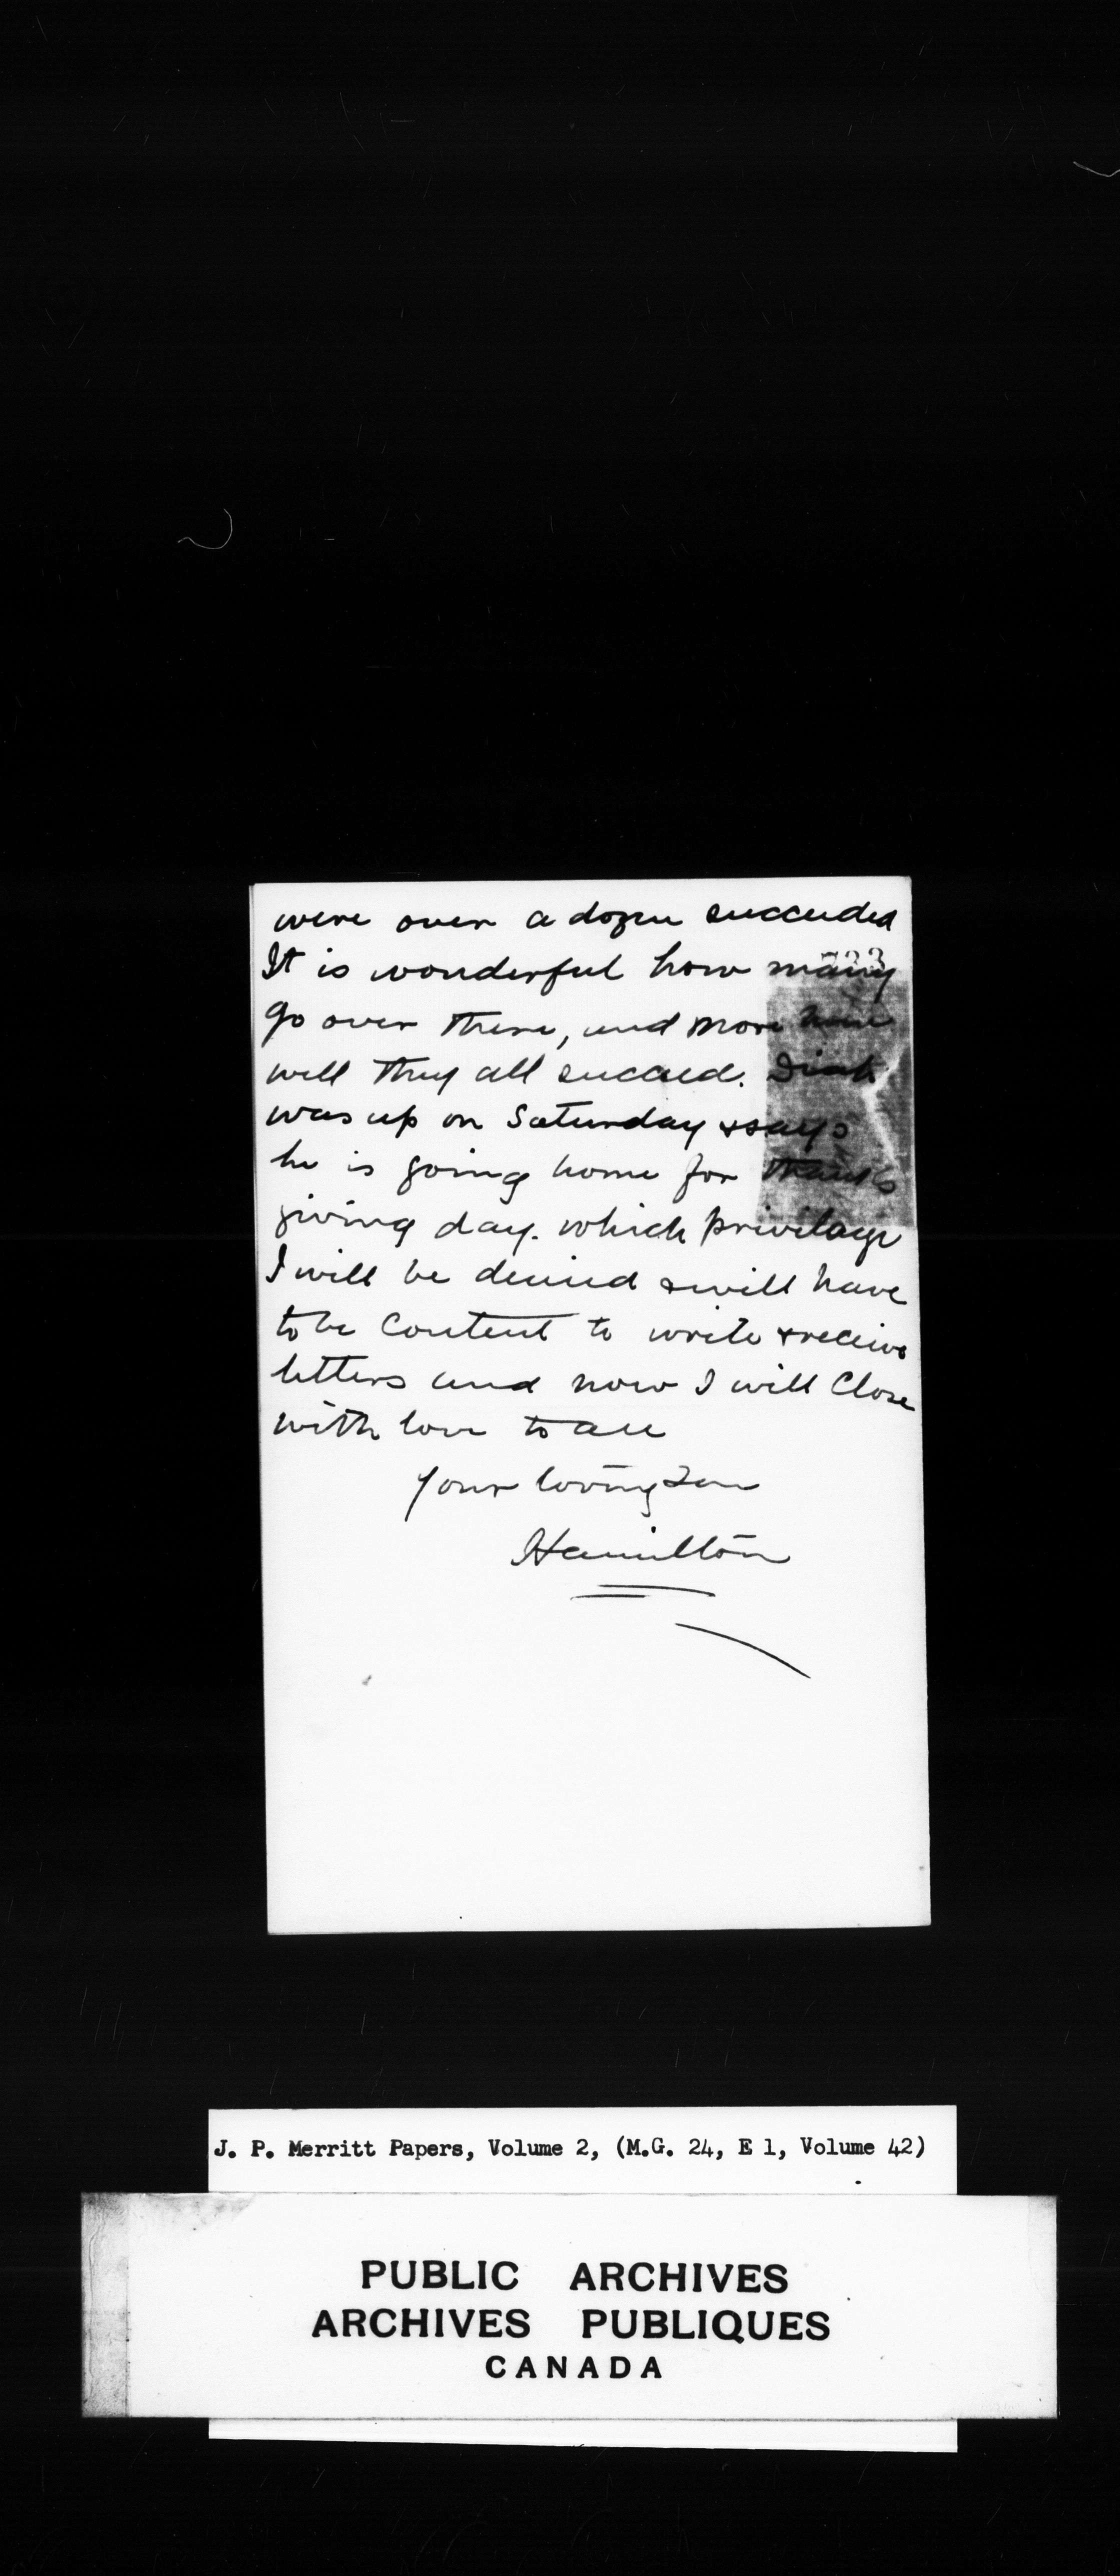 were over a dozen succeeded
It is wonderful how many
go over there, and more
will they all succeed.
was up on Saturday & says
he is going home for thanks
giving day. which privilage
I will be denied & will have
to be content to write & receive
letters and now I will Close
with love to all
Your loving Son
Hamilton
J. P. Merritt Papers, Volume 2, (M.G. 24, E 1, Volume 42)
PUBLIC ARCHIVES
ARCHIVES PUBLIQUES
CANADA